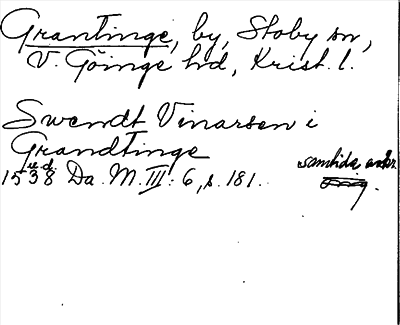 Grantinge, by, Stoby sn,
V. Göinge hd, Krist. l.
Swendt Vinarsen i
Grandtinge
u.d.
1538 Da. M. III: 6, s. 181.
samtida
orig.